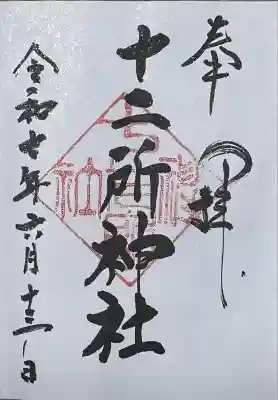 奉拝
十二所神社
令和七年六月十三日